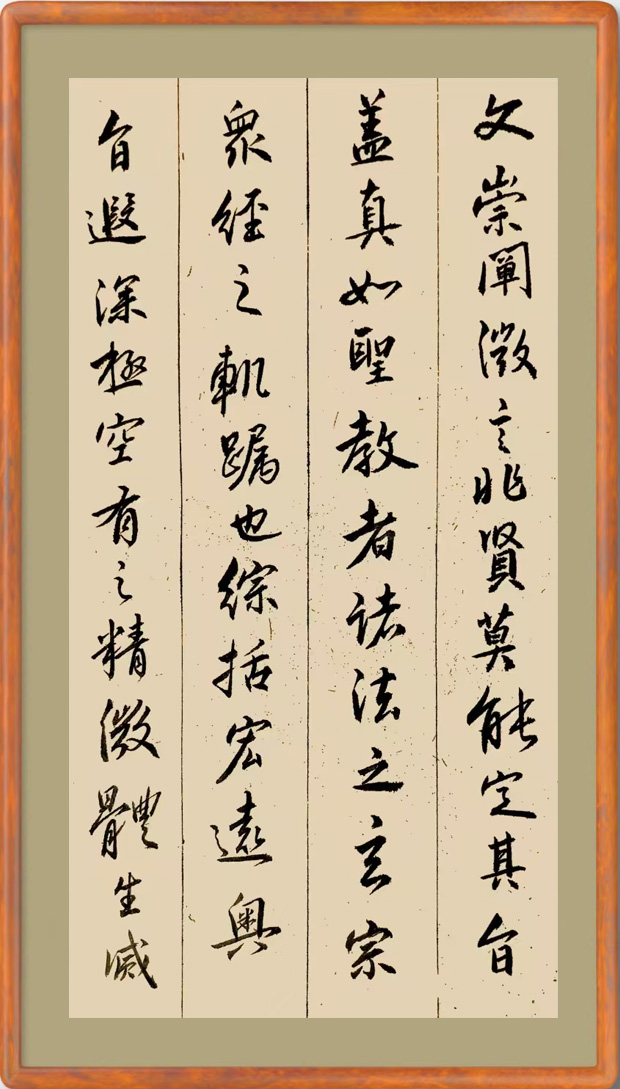 文崇闡微言非賢莫能定其旨
盖真如聖教者諸法之玄宗
衆經之軌躅也綜括宏遠奧
旨遐深極空有之精微體生滅